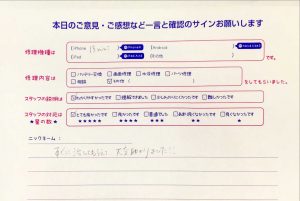 本日のご意見・ご感想など一言と確認のサインお願いします
修理機種は
iPhone 13 mini
Android
iPad
その他
です。
修理内容は
バッテリー交換 画面修理 水没修理 パーツ修理
相談 その他
をしてもらいました。
スタッフの説明は
わかりやすかったです 理解できました 少しわかりにくかったです 難しかったです
スタッフの対応は
★星の数★
とても良かったです 良かったです 普通でした あまり良くなかったです 良くなかったです
★★★★★ ★★★★ ★★★ ★★ ★
ニックネーム：
すぐに治してもらい 大変助かりました